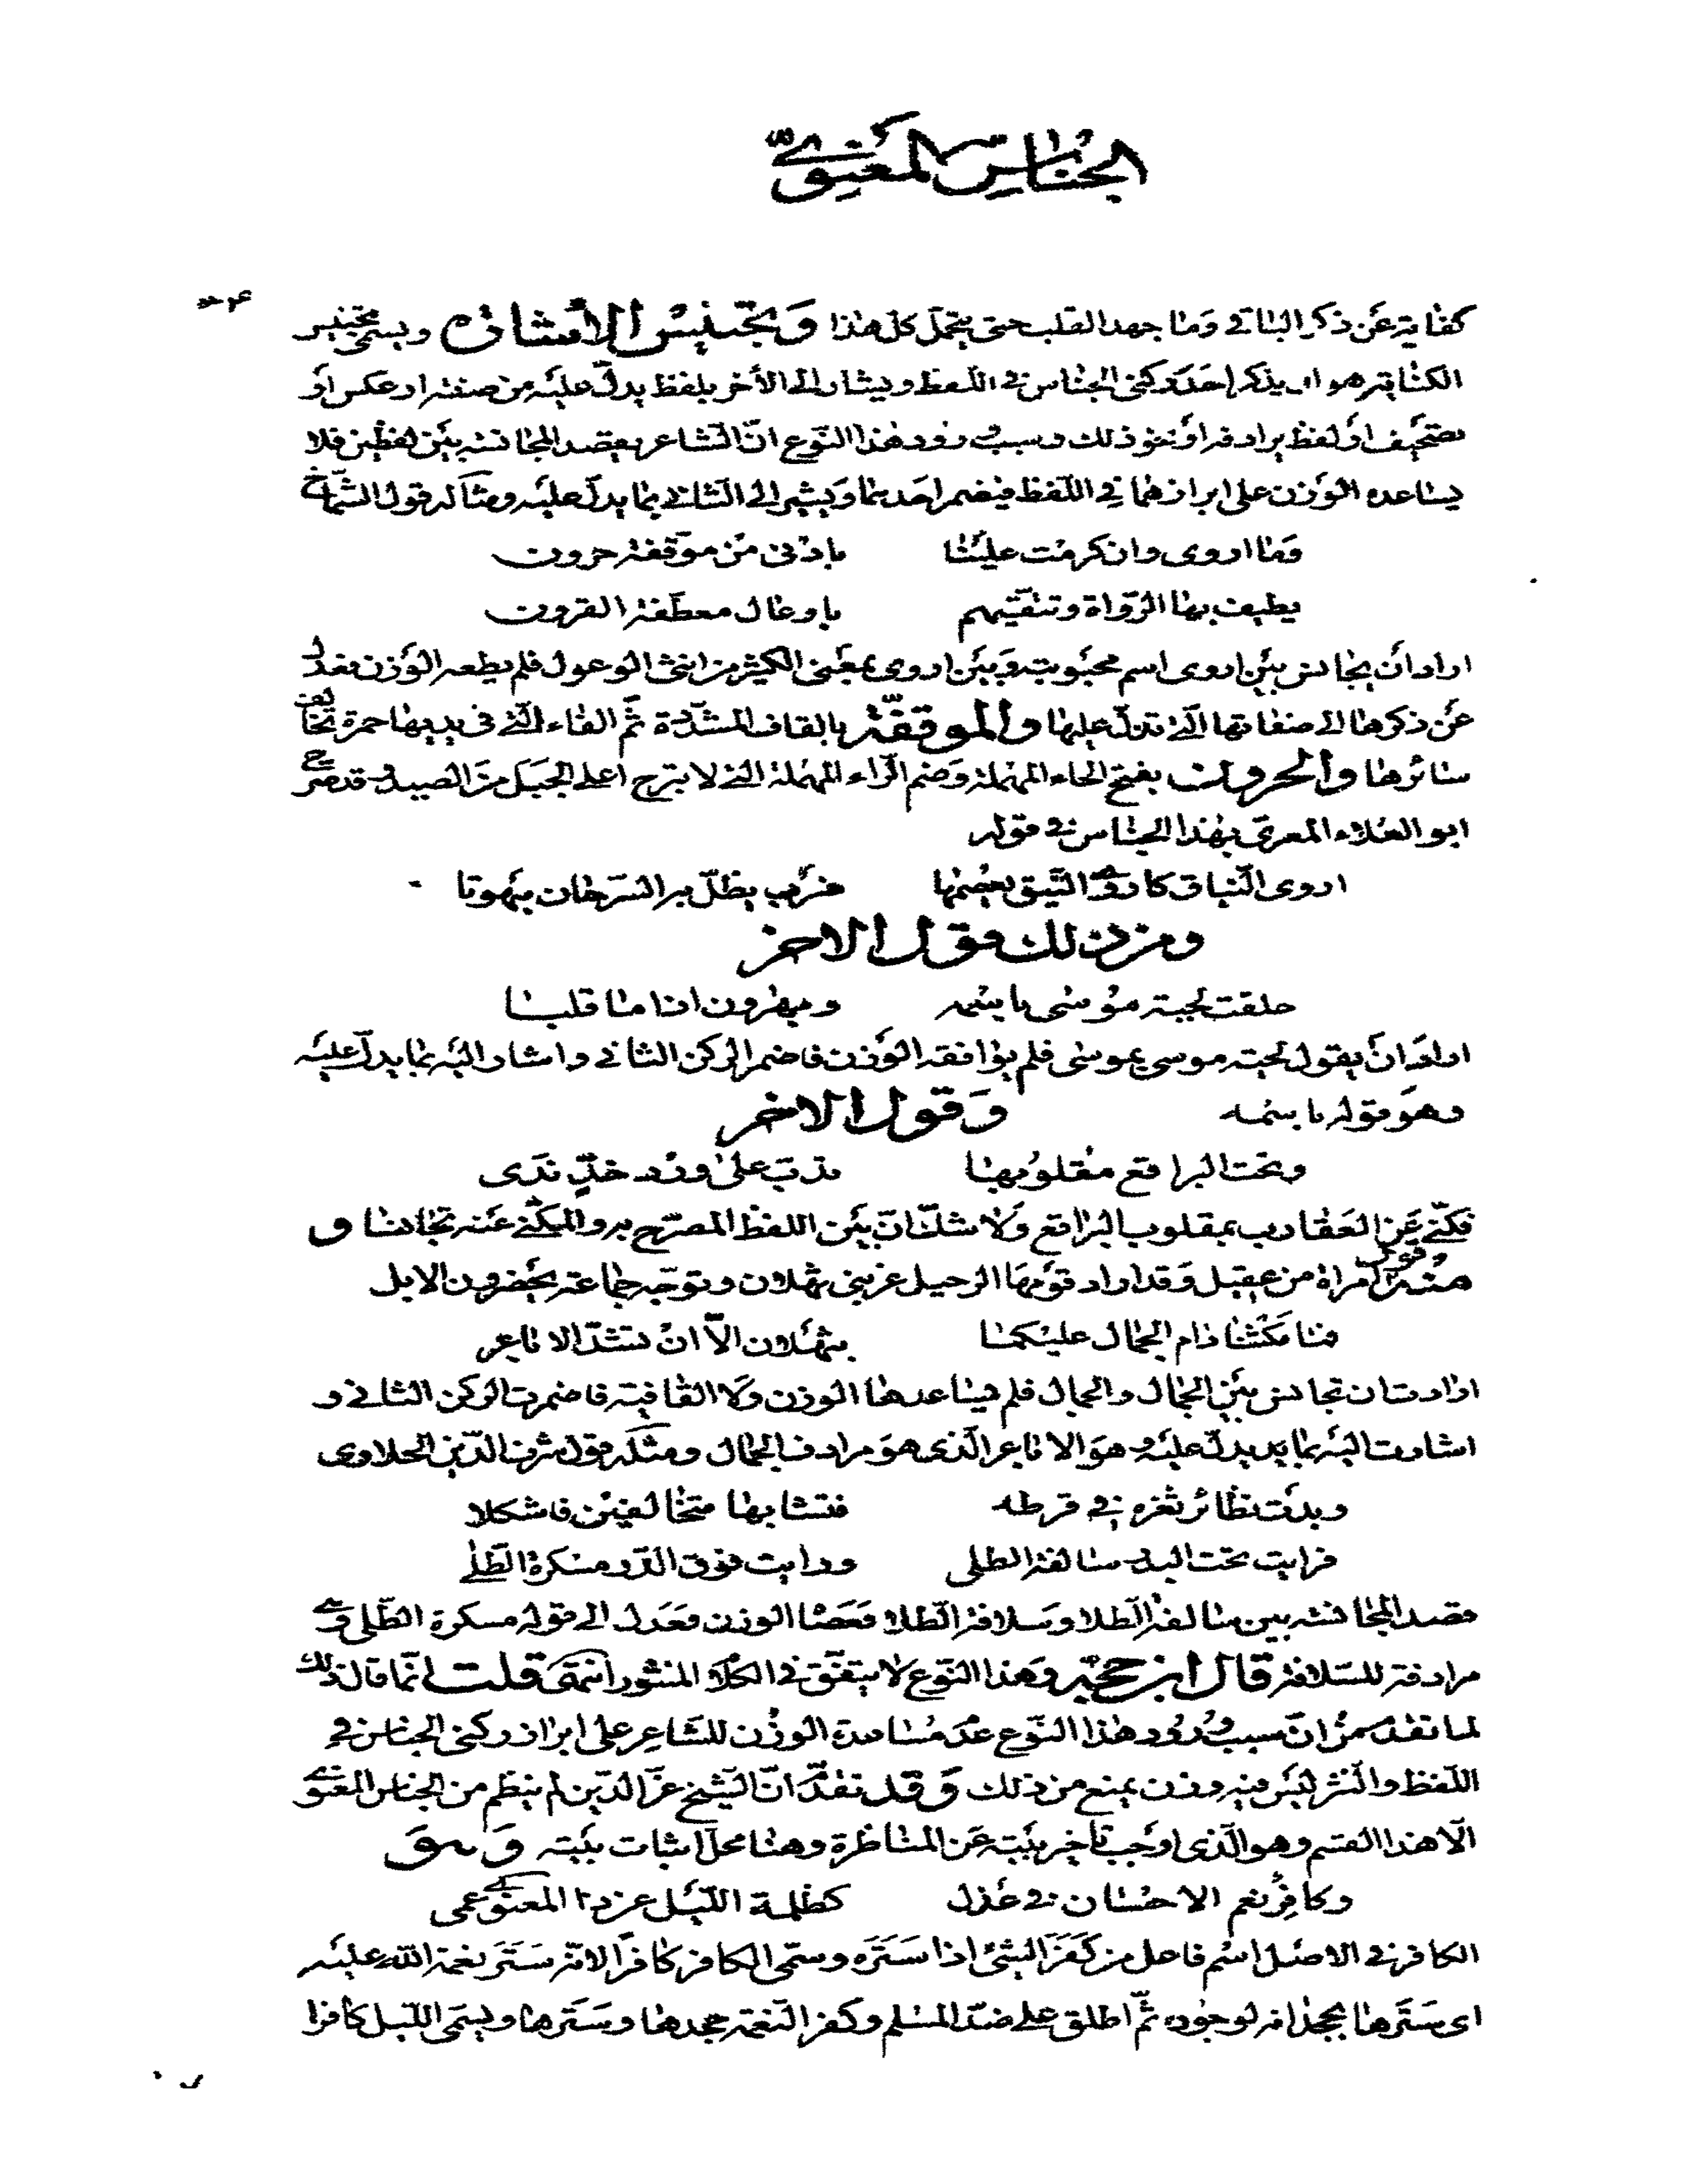 الجناس المعنويّ
كفاية عن ذكر الباقي وما جهد القلب حتى يتحمل كل هذا وتجنيس الاشارة ويسمى تجنيس
الكناية هو ان يذكر احد ركني الجناس في اللفظ ويشار الى الأخر بلفظ يدلّ عليه من صفته او عكس او
تصحيف او لفظ يرادفه او نحو ذلك وسبب ورود هذا النّوع انّ الشاعر يقصد المجانسة بين لفظين فلا
يساعده الوزن على ابرازهما في اللّفظ فيضمر احدهما ويشير الى الثاني بما يدلّ عليه ومثاله قول الشّماخ
وما اروى وان كرمت علينا بادنى من موقّفة حرون
يطيف بها الرّواة وتتقيهم باوعال معطّفة القرون
اراد أن يجانس بين اروى اسم محبوبته وبين اروى بمعنى الكثير من انثى الوعول فلم يطعه الوزن فعدل
عن ذكرها الى صفاتها الّتي تدلّ عليها والموقفّة بالقاف المشدّدة ثمّ الفاء الّتي في يديها حمرة تخالف
سائرها والحرون بفتح الحاء المهملة وضم الرّاء المهملة التي لا تبرح اعلى الجبل من الصيد وقد صرّح
ابو العلاء المعري بهذا الجناس في قوله
اروى النّياق كاروى النّيق يعصمها ضرب يظلّ به السّرحان مبهوتا
ومن ذلك قول الاخر
حلقت لحية موسى باسمه وبهرون اذا ما قلبا
اراد ان يقول لحية موسى بموسى فلم يوافقه الوزن فاضمر الركن الثاني واشار اليه بما يدلّ عليه
وهو قوله باسمه وقول الاخر
وتحت البراقع مقلوبها تدبّ على ورد خدّ ندى
فكنّى عن العقارب بمقلوب البراقع ولا شكّ انّ بين اللفظ المصرّح به والمكنّى عنه تجانسا و
منه قول امراة من عقيل وقد اراد قومها الرحيل عن بني ثهلان وتوجّه جماعة يحضرون الابل
فما مكثنا دام الجمال عليكما بثهلان الّا انْ تشدّ الاباعر
ارادت ان تجانس بين الجمال والجمال فلم يساعدها الوزن ولا القافية فاضمرت الركن الثاني و
اشارت اليه بما يدلّ عليه وهو الاباعر الّذي هو مرادف الجمال ومثله قول شرف الدّين الحلاوى
وبدت نظائر ثغره في قرطه فتشابها متخالفين فاشكلا
فرايت تحت البدر سالفة الطلى ورايت فوق الدّر مسكرة الطّلى
قصد المجانسة بين سالفة الطلا وسلافة الطلا فعصا الوزن فعدل الى قوله مسكرة الطّلى وهي
مرادفة للسّلافة قال ابن حجّه وهذا النّوع لا يتفق في الكلام المنثور انتهى قلت انّما قال ذلك
لما تقدّم من انّ سبب ورود هذا النوع عدم مساعدة الوزن للشاعر على ابراز ركني الجناس في
اللفظ والنثر ليس فيه وزن يمنع من ذلك وقد تقدّم انّ الشيخ عزّ الدّين لم ينظم من الجناس المعنوي
الّا هذا القسم وهو الّذي اوجب تاخير بيته عن المناظرة وهنا محلّ اثبات بيته وهو
وكافر نعم الاحسان في عذل كظلمة اللّيل عن ذا المعنوي عمى
الكافر في الاصل اسم فاعل من كفر الشئ اذا ستره وسمّى الكافر كافرا لانّه ستر نعمة الله عليه
اى سترها بجحدانه لوجوده ثمّ اطلق على ضدّ المسلم وكفر النّعمة جحدها وسترها ويسمّى اللّيل كافرا